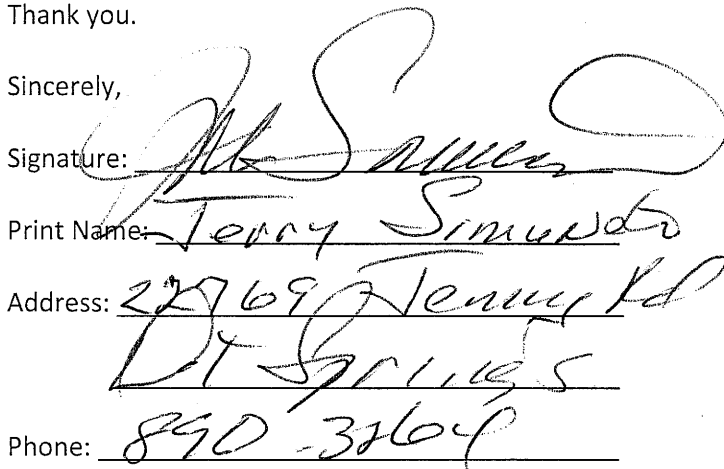 Thank you.
Sincerely,
Signature:
Print Name: Terry Simundo
Address: 22769 Jenny Rd
Dt Springs
Phone: 890-3264